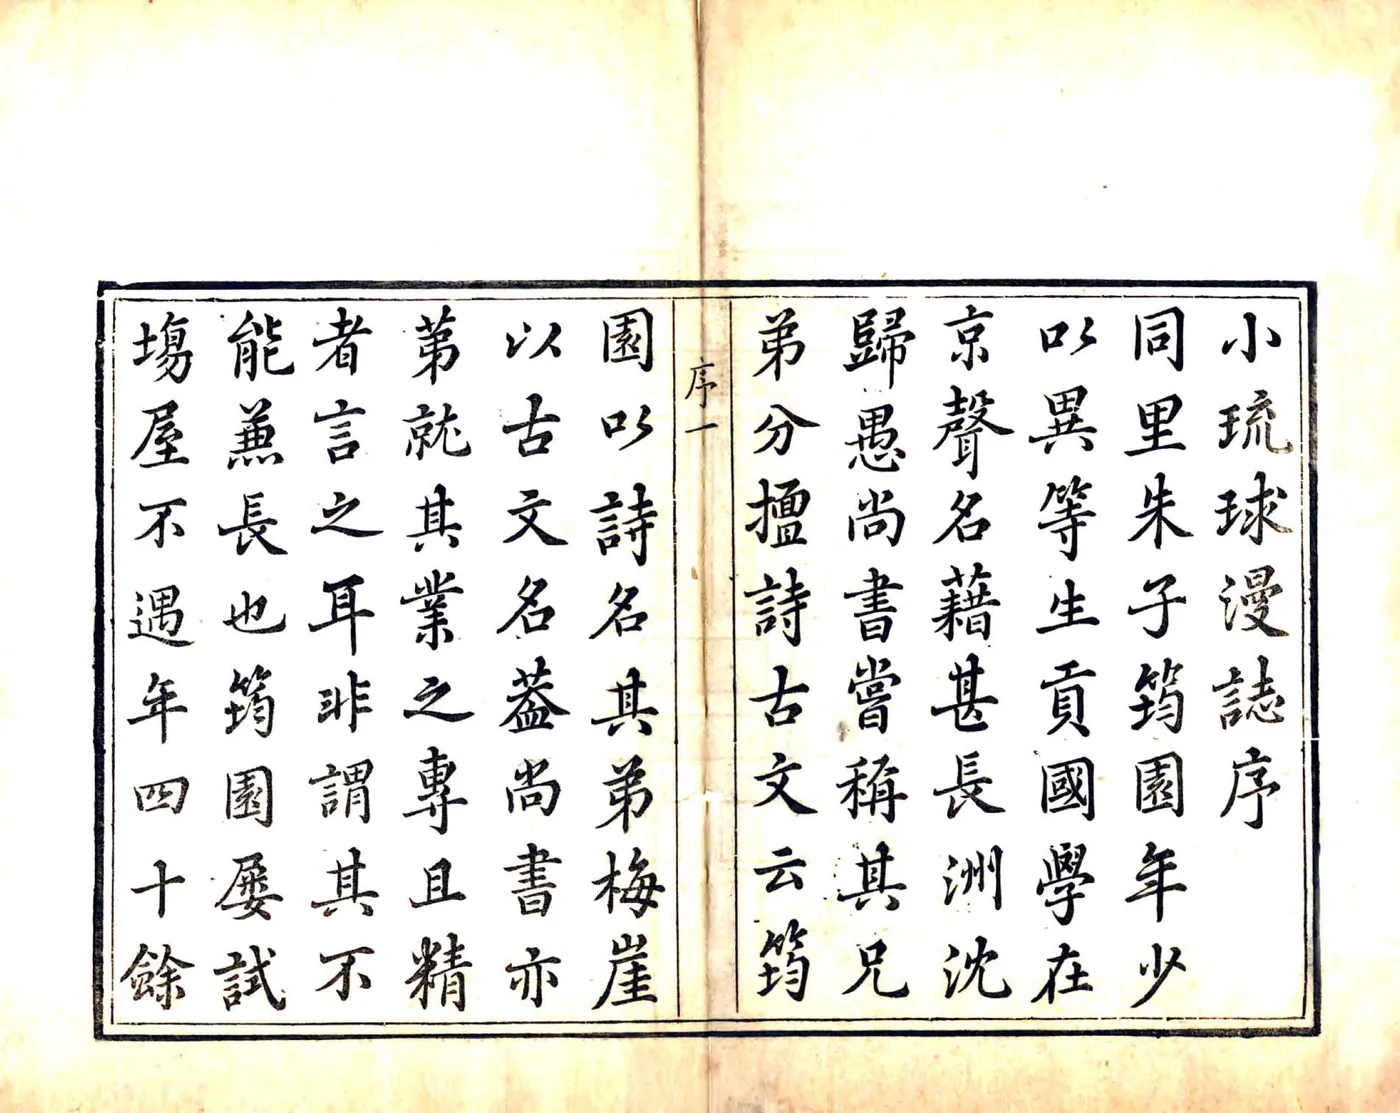 小琉球漫誌序
同里朱子筠園年少
以異等生貢國學在
京聲名藉甚長洲沈
歸愚尚書嘗稱其兄
弟分擅詩古文云筠
序一
園以詩名其弟梅崖
以古文名葢尚書亦
苐就其業之專且精
者言之耳非謂其不
能兼長也筠園屢試
塲屋不遇年四十餘